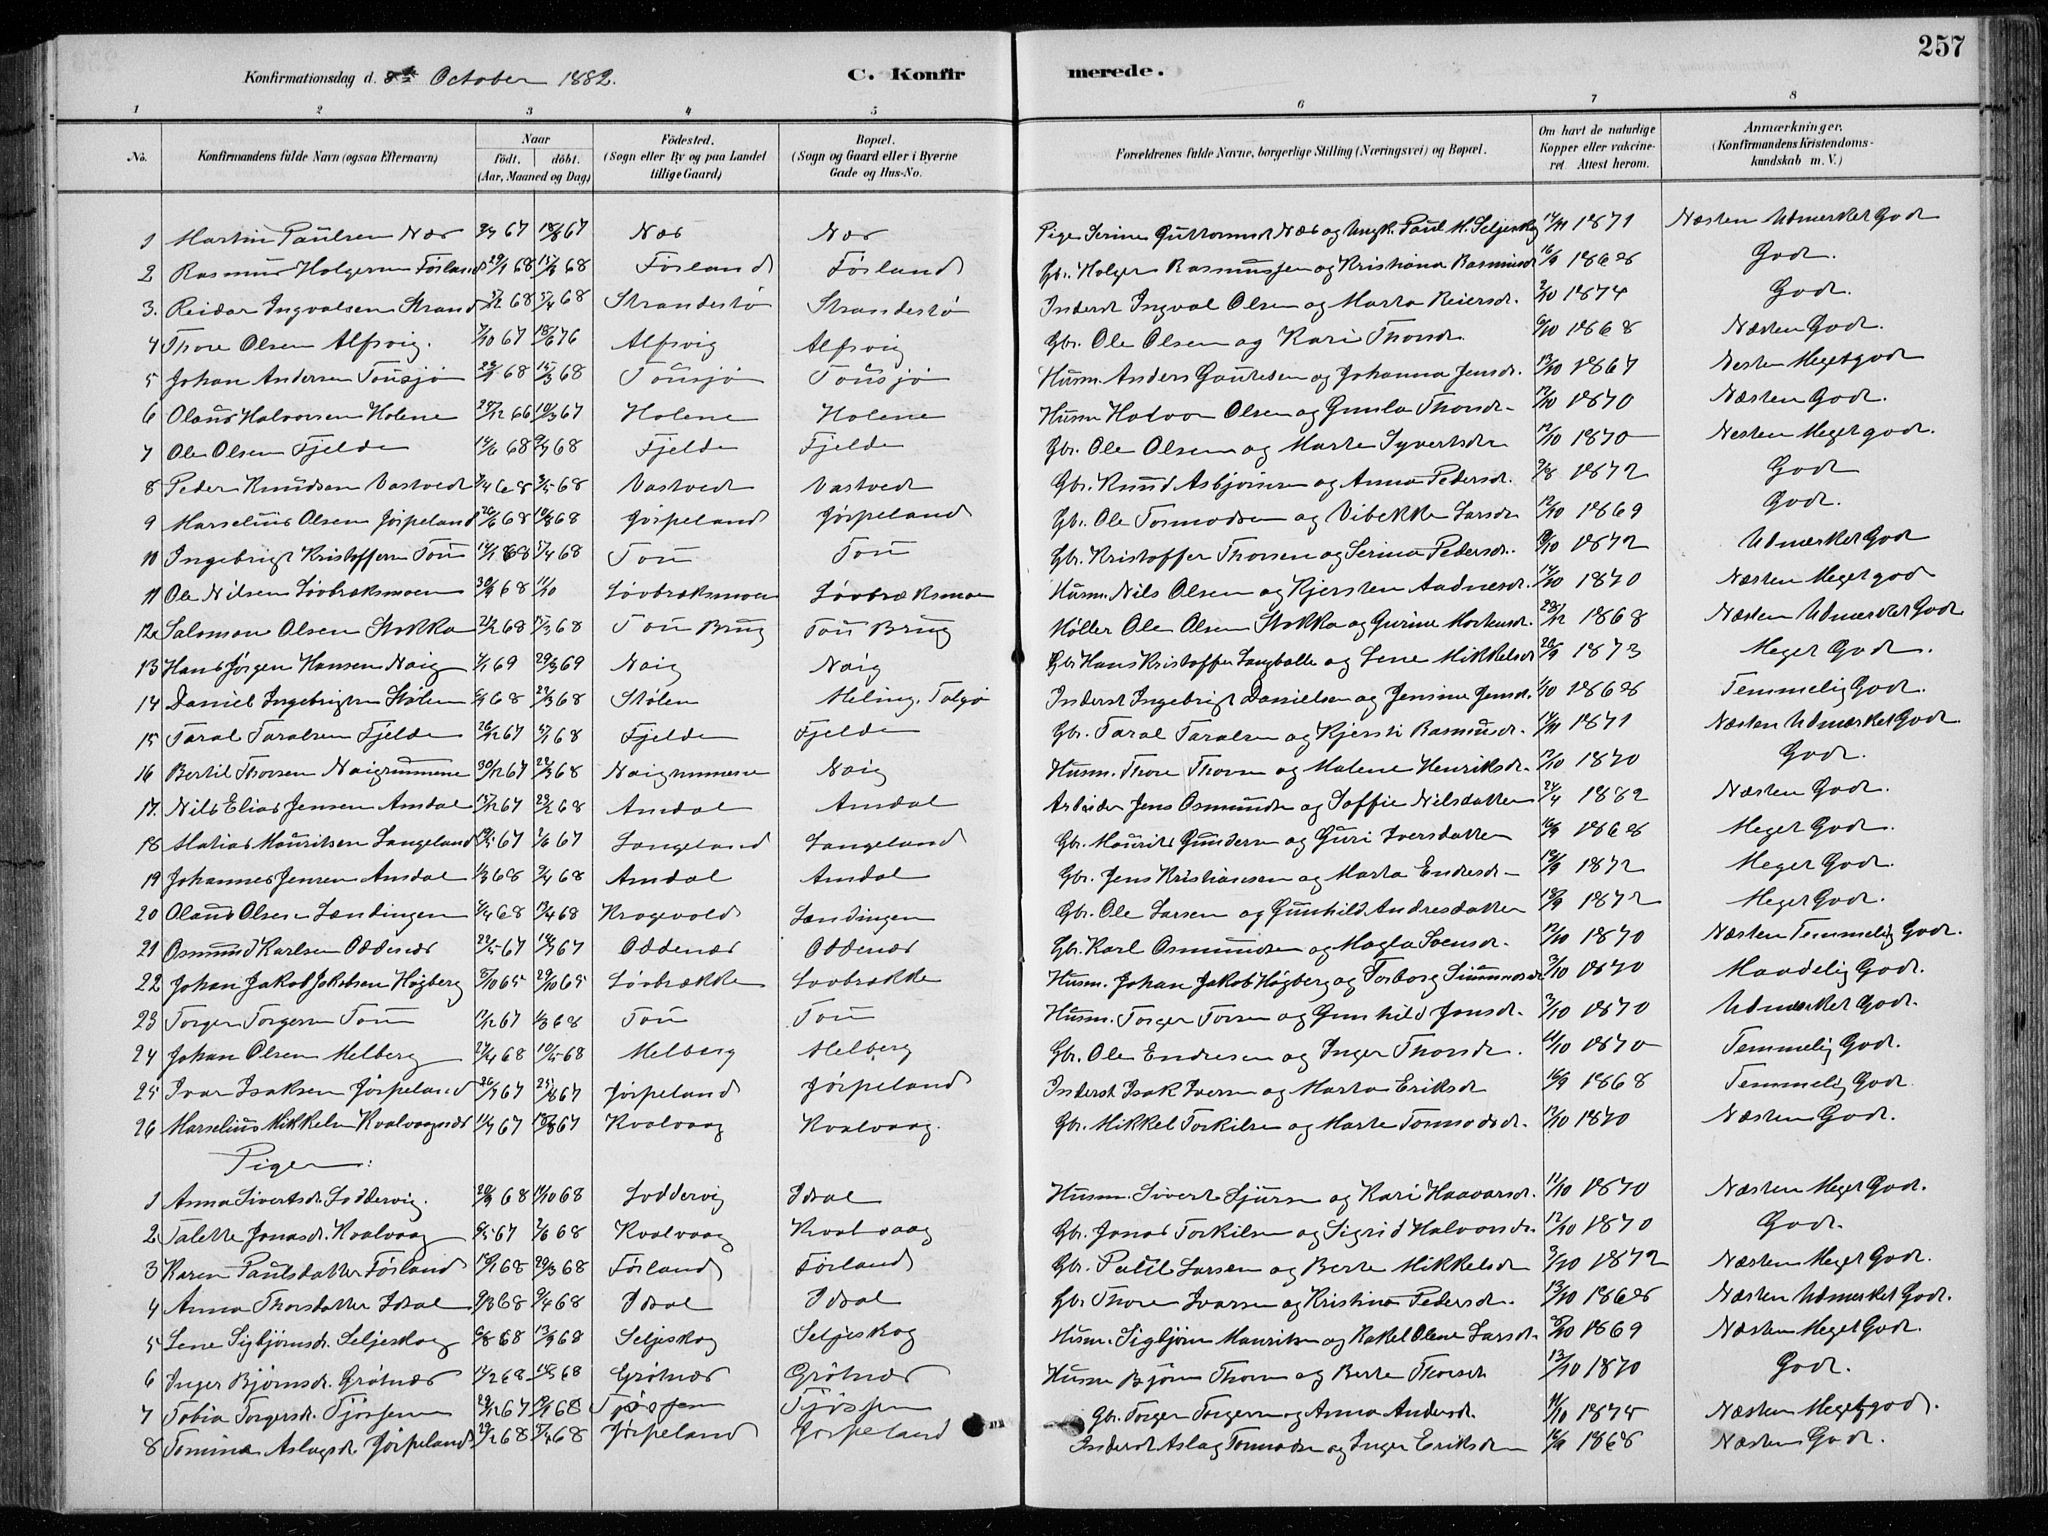 257
Konfirmationsdag d. 8de October 1882. C. Konfirmerede.
1 2 3 4 5 6 7 8
No. Konfirmandens fulde Navn (ogsaa Efternavn) Naar födt. döbt. (Aar, Maaned og Dag) Födested. (Sogn eller By og paa Landet tillige Gaard) Bopæl. (Sogn og Gaard eller i Byerne Gade og Hus-No. Forældrenes fulde Navne, borgerlige Stilling (Næringsvei) og Bopæl. Om havt de naturlige Kopper eller vakcineret. Attest herom. Anmærkninger. (Konfirmandens Kristendomskundskab m. V.)
1 Martin Paulsen Næs 67 67 Næs Næs Pige Serine Guttormsd. Næs og Ungk. Paul M. Seljeskog 1871 Næsten Udmerket God
2 Rasmus Holgersen Förland 68 68 Förland Förland Gbr. Holger Rasmussen og Kristiana Rasmusd. 1868 God.
3. Reidar Ingvalsen Strand 68 68 Strandestø Strandestø Inderst Ingval Olsen og Marta Reiersd. 1874 God.
4 Thore Olsen Alfsvig. 67 Alfsvig Alfsvig Gbr. Ole Olsen og Kari Thorsd. 1868 Næsten God.
5 Johan Andersen Tousjø 68 68 Tousjø Tousjø Husm. Anders Gautesen og Johanna Jensd. 1867 Næsten Meget god
6 Olaus Halvorsen Holene 66 67 Holene Holene Husm Halvor Olsen og Gunla Thorsd. 1870 Næsten God.
7 Ole Olsen Fjelde 68 68 Fjelde Fjelde Gbr. Ole Olsen og Marte Syvertsdr 1870 Nesten Meget god.
8 Peder Knudsen Vastvedt 68 68 Vastvedt Vastvedt Gbr. Knud Asbjörnsen og Anna Pedersd. 1872 God
9 Marselius Olsen Jörpeland 68 68 Jörpeland Jörpeland Gbr. Ole Tormodsen og Vibekke Larsdr 1869 God.
10 Ingebrigt Kristoffersen Tou 68 68 Tou Tou Gbr. Kristoffer Thorsen og Serina Pedersd. 1872 Udmærket God
11 Ole Nilsen Lövbræksmoen 68 11/10 Lövbræksmoen Lövbræksmoen Husm. Nils Olsen og Kjersten Aadnesd. 1870 Næsten Meget god
12 Salomon Olsen Stokka 68 68 Tou Brug Tou Brug Möller Ole Olsen Stokka og Gurine Mortensd. 1868 Næsten Udmerket God
13 Hans Jørgen Hansen Naig 69 69 Naig Naig Gbr Hans Kristoffer Langballe og Lene Mikkelsd 1873 Meget God.
14 Daniel Ingebrigtsen Stølen 68 68 Stølen Meling, Talgø Inderst Ingebrigt Danielsen og Jensine Jensd. 1868 Temmelig God.
15 Taral Taralsen Fjelde 67 68 Fjelde Fjelde Gbr. Taral Taralsen og Kjersti Rasmusd. 1871 Næsten Udmærket God
16 Bertil Thorsen Naigrummene 67 68 Naigrummene Naig Husm. Thore Thorsen og Malene Henriksd. 1870 God.
17. Nils Elias Jensen Amdal 67 68 Amdal Amdal Arbeider Jens Osmundsen og Soffie Nilsdatter 1882 Næsten God.
18 Matias Mauritsen Langeland 67 67 Langeland Langeland Gbr. Maurits Gundersen og Guri Iversdatter 1868 Meget God.
19 Johannes Jensen Amdal 68 68 Amdal Amdal Gbr. Jens Kristiansen og Marta Endresd. 1872 Meget God.
20 Olaus Olsen Lændingen 68 68 Kragevold Lændingen Gbr. Ole Larsen og Gunhild Andresdatter 1872 Meget God.
21 Osmund Karlsen Oddenæs 67 67 Oddenæs Oddenæs Gbr. Karl Osmundsen og Magla Svensd. 1870 Næsten Temmelig God.
22 Johan Jakob Jakobsen Högberg 65 65 Lövbrække Lovbrække Husm. Johan Jakob Högberg og Torborg 1870 Maadelig God.
23 Torger Torgersen Tou 67 68 Tou Tou Husm. Torger Torsen og Gunhild Jonsd. 1870 Udmærket God.
24 Johan Olsen Melberg 68 68 Melberg Melberg Gbr. Ole Endresen og Inger Thorsd. 1870 Temmelig God.
25 Ivar Isaksen Jörpeland 67 67 Jörpeland Jörpeland Inderst Isak Iversen og Marta Eriksd. 1868 Temmelig God
26 Marselius Mikkelsen Kvalvaagnæs 67 67 Kvalvaag Kvalvaag. Gbr. Mikkel Torkilsen og Marte Tormodsd. 1870 Næsten God.
Piger:
1 Anna Sivertsd. Loddervig. 68 68 Loddervig Idsal Husm. Sivert Sjursen og Kari Haavarsd. 1870 Næsten Meget God.
2 Talette Jonasd. Kvalvaag 67 68 Kvalvaag Kvalvaag Gbr. Jonas Torkilsen og Sigrid Halvorsd. 1870 God.
3 Karen Paulsdatter Förland 68 68 Förland Förland Gbr. Paul Larsen og Berte Mikkelsd 1872 Næsten Meget God.
4 Anna Thorsdatter Idsal 68 68 Idsal Idsal Gbr Thore Ivarsen og Kristina Pedersd. 1868 Næsten Udmerket God.
5 Lene Sigbjörnsd. Seljeskog 68 68 Seljeskog Seljeskog Husm. Sigbjörn Mauritsen og Rakel Olene Larsd. 1869 Næsten Meget God.
6 Inger Bjørnsd. Grötnæs 68 68 Grötnæs Grötnæs Husm Bjørn Thorsen og Berte Thorsd 1870 God.
7 Tobia Torgersd. Tjössem 67 68 Tjössem Tjössem Gbr. Torger Torgersen og Anna Andersd. 1875 Næsten Meget god.
8 Tomine Aslagsd. Jörpeland 68 68 Jörpeland Jörpeland Inderst Aslag Tormodsen og Inger Eriksd. 1868 Næsten God.